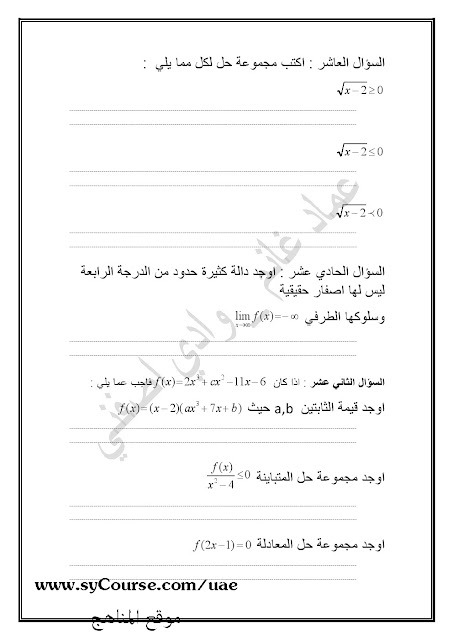 السؤال العاشر : اكتب مجموعة حل لكل مما يلي :
√x−2 ≥ 0
√x−2 ≤ 0
√x−2 ≺ 0
السؤال الحادي عشر : اوجد دالة كثيرة حدود من الدرجة الرابعة
ليس لها اصفار حقيقية
وسلوكها الطرفي lim f(x)=−∞ x→∞
السؤال الثاني عشر : اذا كان f(x)=2x³+cx²−11x−6 فاجب عما يلي :
اوجد قيمة الثابتين a,b حيث f(x)=(x−2)(ax³+7x+b)
اوجد مجموعة حل المتباينة f(x)/x²−4 ≤0
اوجد مجموعة حل المعادلة f(2x−1)=0
www.syCourse.com/uae
موقع المناهج